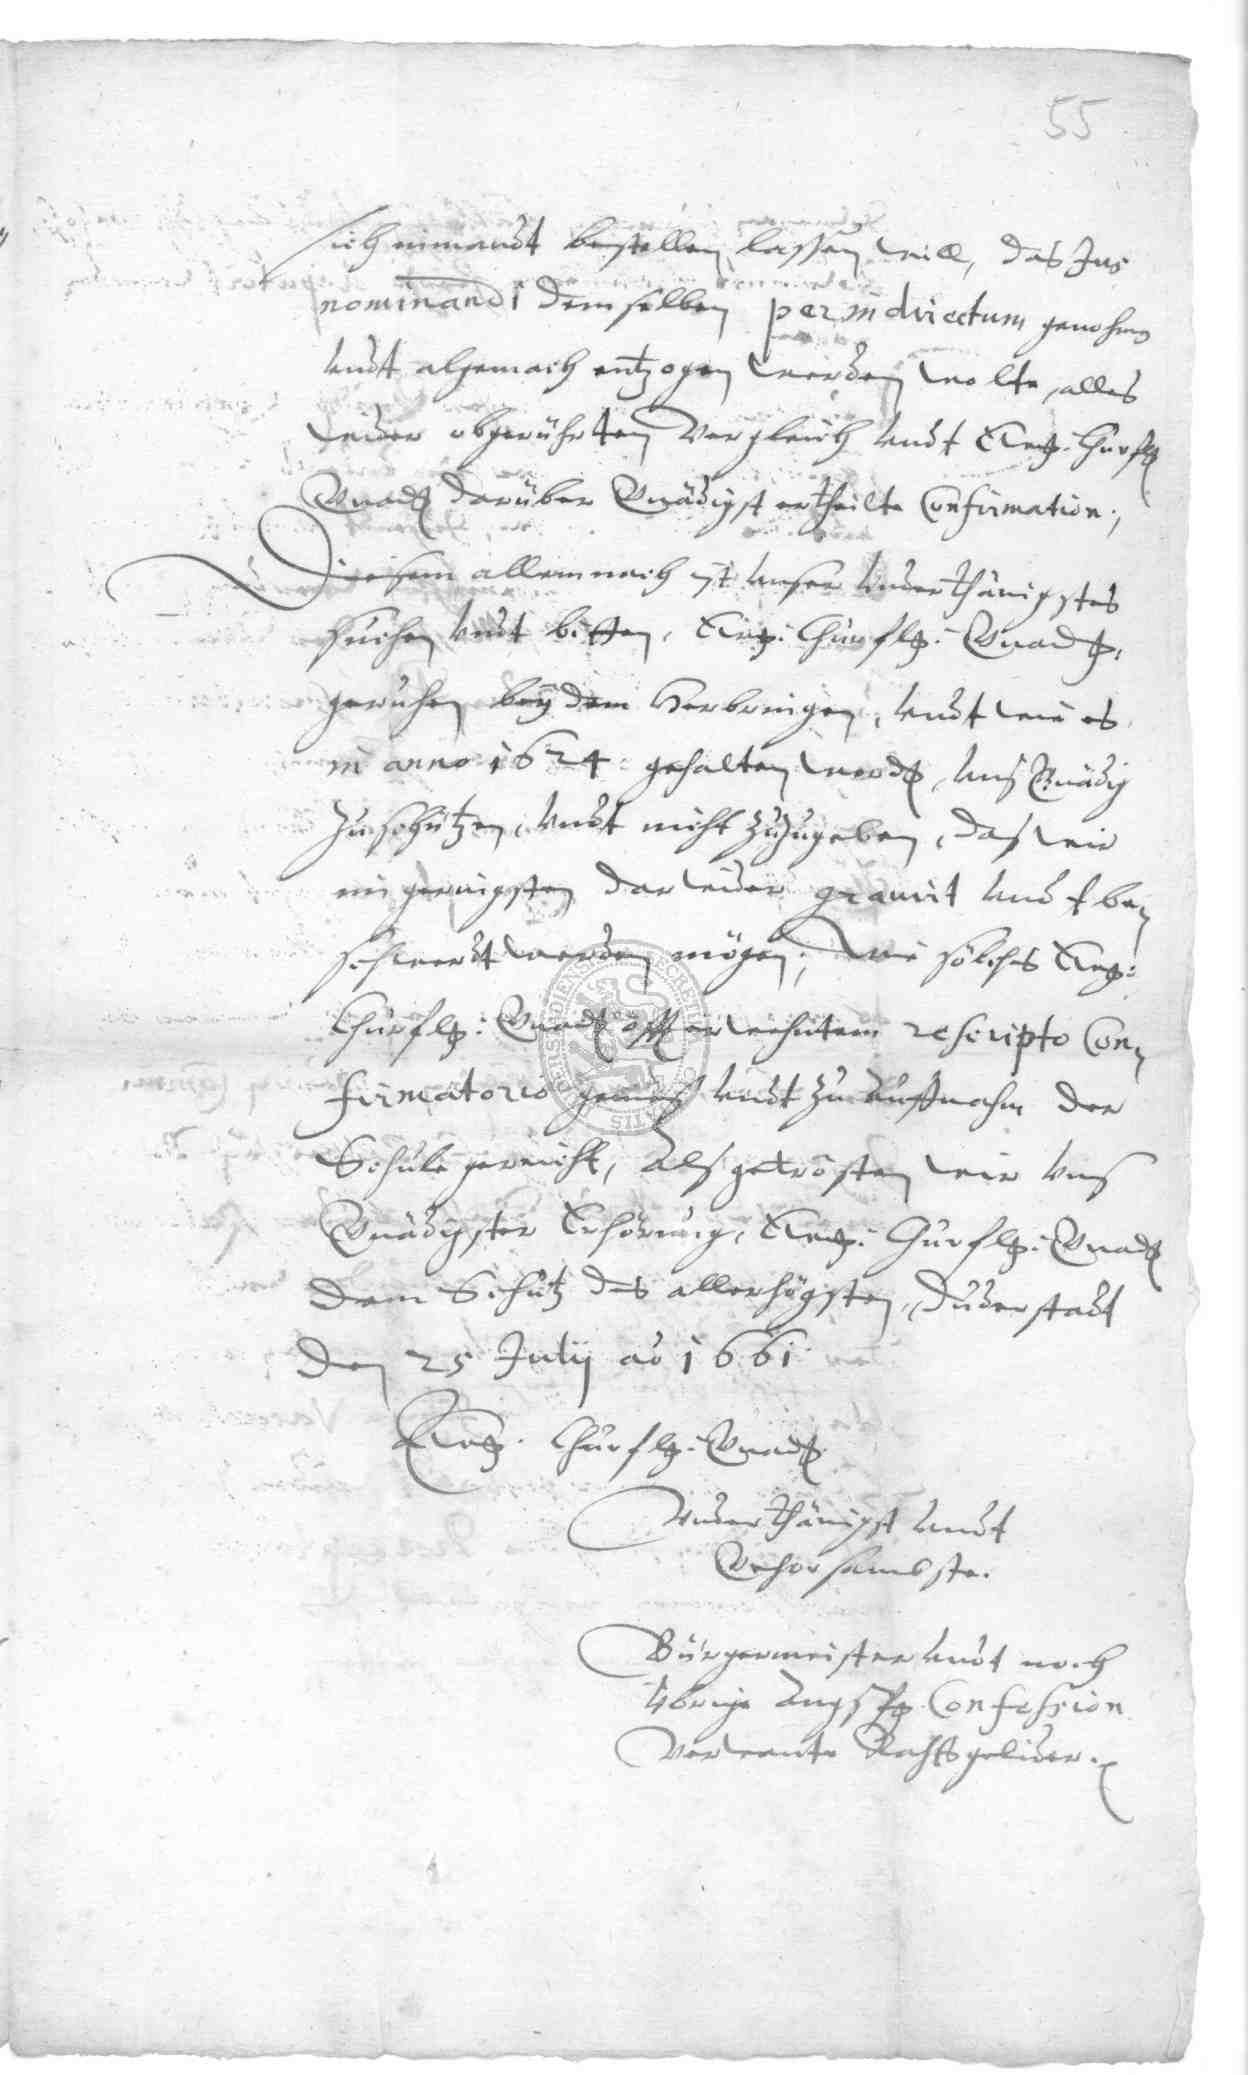 55
sich nimandt bestellen lassen will, das Jus
nominandi demselben per indirectum genohmen
undt algemach entzogen werden wolte, alles
wider obgerührten Vergleich undt Ewg. Churfl.
Gnad. darüber Gnädigst ertheilte Confirmation.,
Diesem allemnach ist unser underthänigstes
suchen undt bitten, Ewg: Churflg: Gnadg.
geruhen bey dem Herbringen, undt wie es
in anno 1624 gehalten word, uns Gnädig
zu schützen, undt nicht zuzugeben, das wir
im geringsten darwider gravirt undt be„
schwerdt werden mögen; Wie solches Ewg:
Churflg: Gnad. offt erwehntem rescripto Con„
firmatorio gemeß undt zu auffnahm der
Schule gereicht, Als getrösten wir uns
Gnädigster Erhörung, Ewg: Churflg: Gnad.
dem Schutz des allerhögsten, Duderstadt
den 25 Julij ao 1661
Ewg. Churflg: Gnad.
Underthänigst undt
Gehorsambste.
Bürgermeister undt noch
übrige Augspg. Confession
Verwante Rahtsgelider.